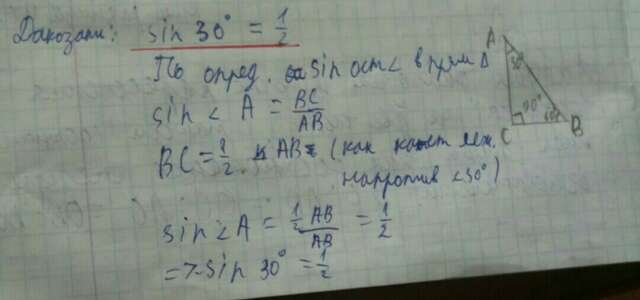 Доказать: sin 30° = 1/2
По опред. sin ост ∠ в прям Δ
sin ∠ A = BC/AB
BC = 1/2 AB (как катет леж. напротив ∠30°)
sin ∠A = 1/2 AB / AB = 1/2
=> sin 30° = 1/2
A
30°
90°
60°
C
B